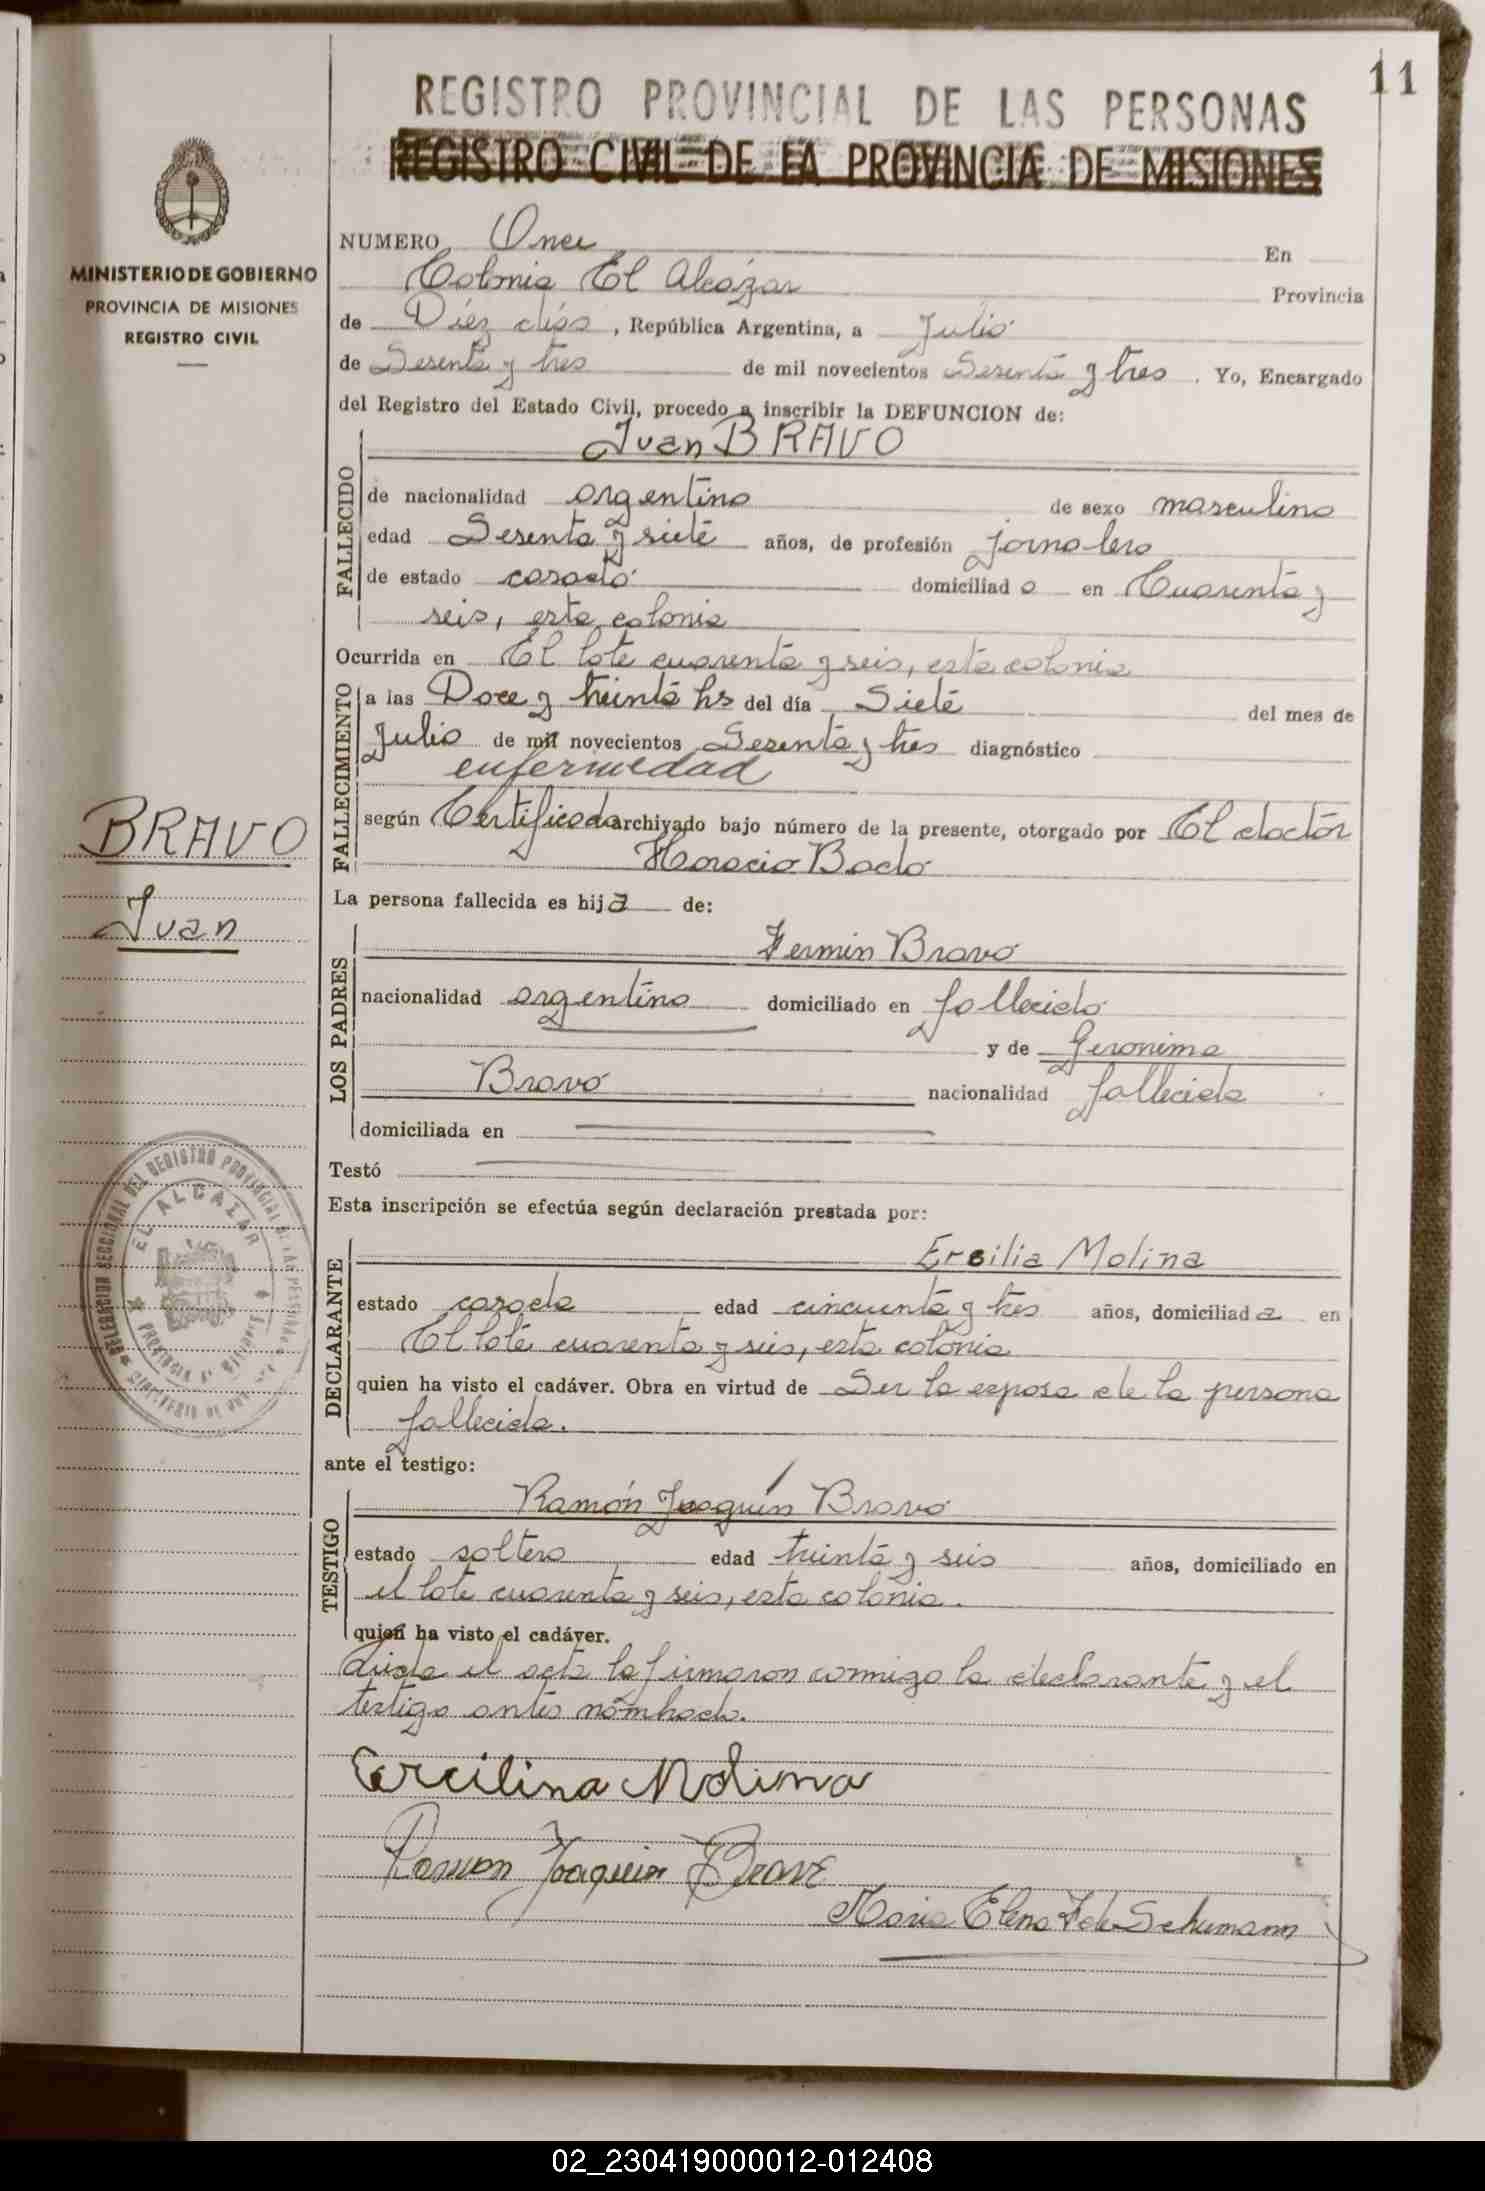 11
REGISTRO PROVINCIAL DE LAS PERSONAS
REGISTRO CIVIL DE LA PROVINCIA DE MISIONES
MINISTERIO DE GOBIERNO
PROVINCIA DE MISIONES
REGISTRO CIVIL
NUMERO Once En
Colonia El Alcázar Provincia
de Diez días, República Argentina, a Julio
de Sesenta y tres de mil novecientos Sesenta y tres. Yo, Encargado
del Registro del Estado Civil, procedo a inscribir la DEFUNCION de:
Juan BRAVO
FALLECIDO
de nacionalidad argentino de sexo masculino
edad Sesenta y siete años, de profesión jornalero
de estado casado domiciliado en Cuarenta y
seis, esta colonia
Ocurrida en El lote cuarenta y seis, esta colonia
FALLECIMIENTO
a las Doce y treinta hs del día Siete del mes de
Julio de mil novecientos Sesenta y tres diagnóstico
enfermedad
según Certificado archivado bajo número de la presente, otorgado por El doctor
Horacio
BRAVO
Juan
La persona fallecida es hija de:
LOS PADRES
Fermin Bravo
nacionalidad argentino domiciliado en fallecido
y de Geronima
Bravo nacionalidad fallecida
domiciliada en
Testó
Esta inscripción se efectúa según declaración prestada por:
DECLARANTE
Ersilia Molina
estado casada edad cincuenta y tres años, domiciliada en
El lote cuarenta y seis, esta colonia
quien ha visto el cadáver. Obra en virtud de Ser la esposa de la persona
fallecida.
ante el testigo:
TESTIGO
Ramón Joaquín Bravo
estado soltero edad treinta y seis años, domiciliado en
el lote cuarenta y seis, esta colonia.
quien ha visto el cadáver.
Leída el acta la firmaron conmigo la declarante y el
testigo antes nombrado.
Ercilina Molina
Ramon Joaquin Brave
Maria Elena F de Schumann
EL ALCAZAR
PROVINCIA DE MISIONES
02_230419000012-012408